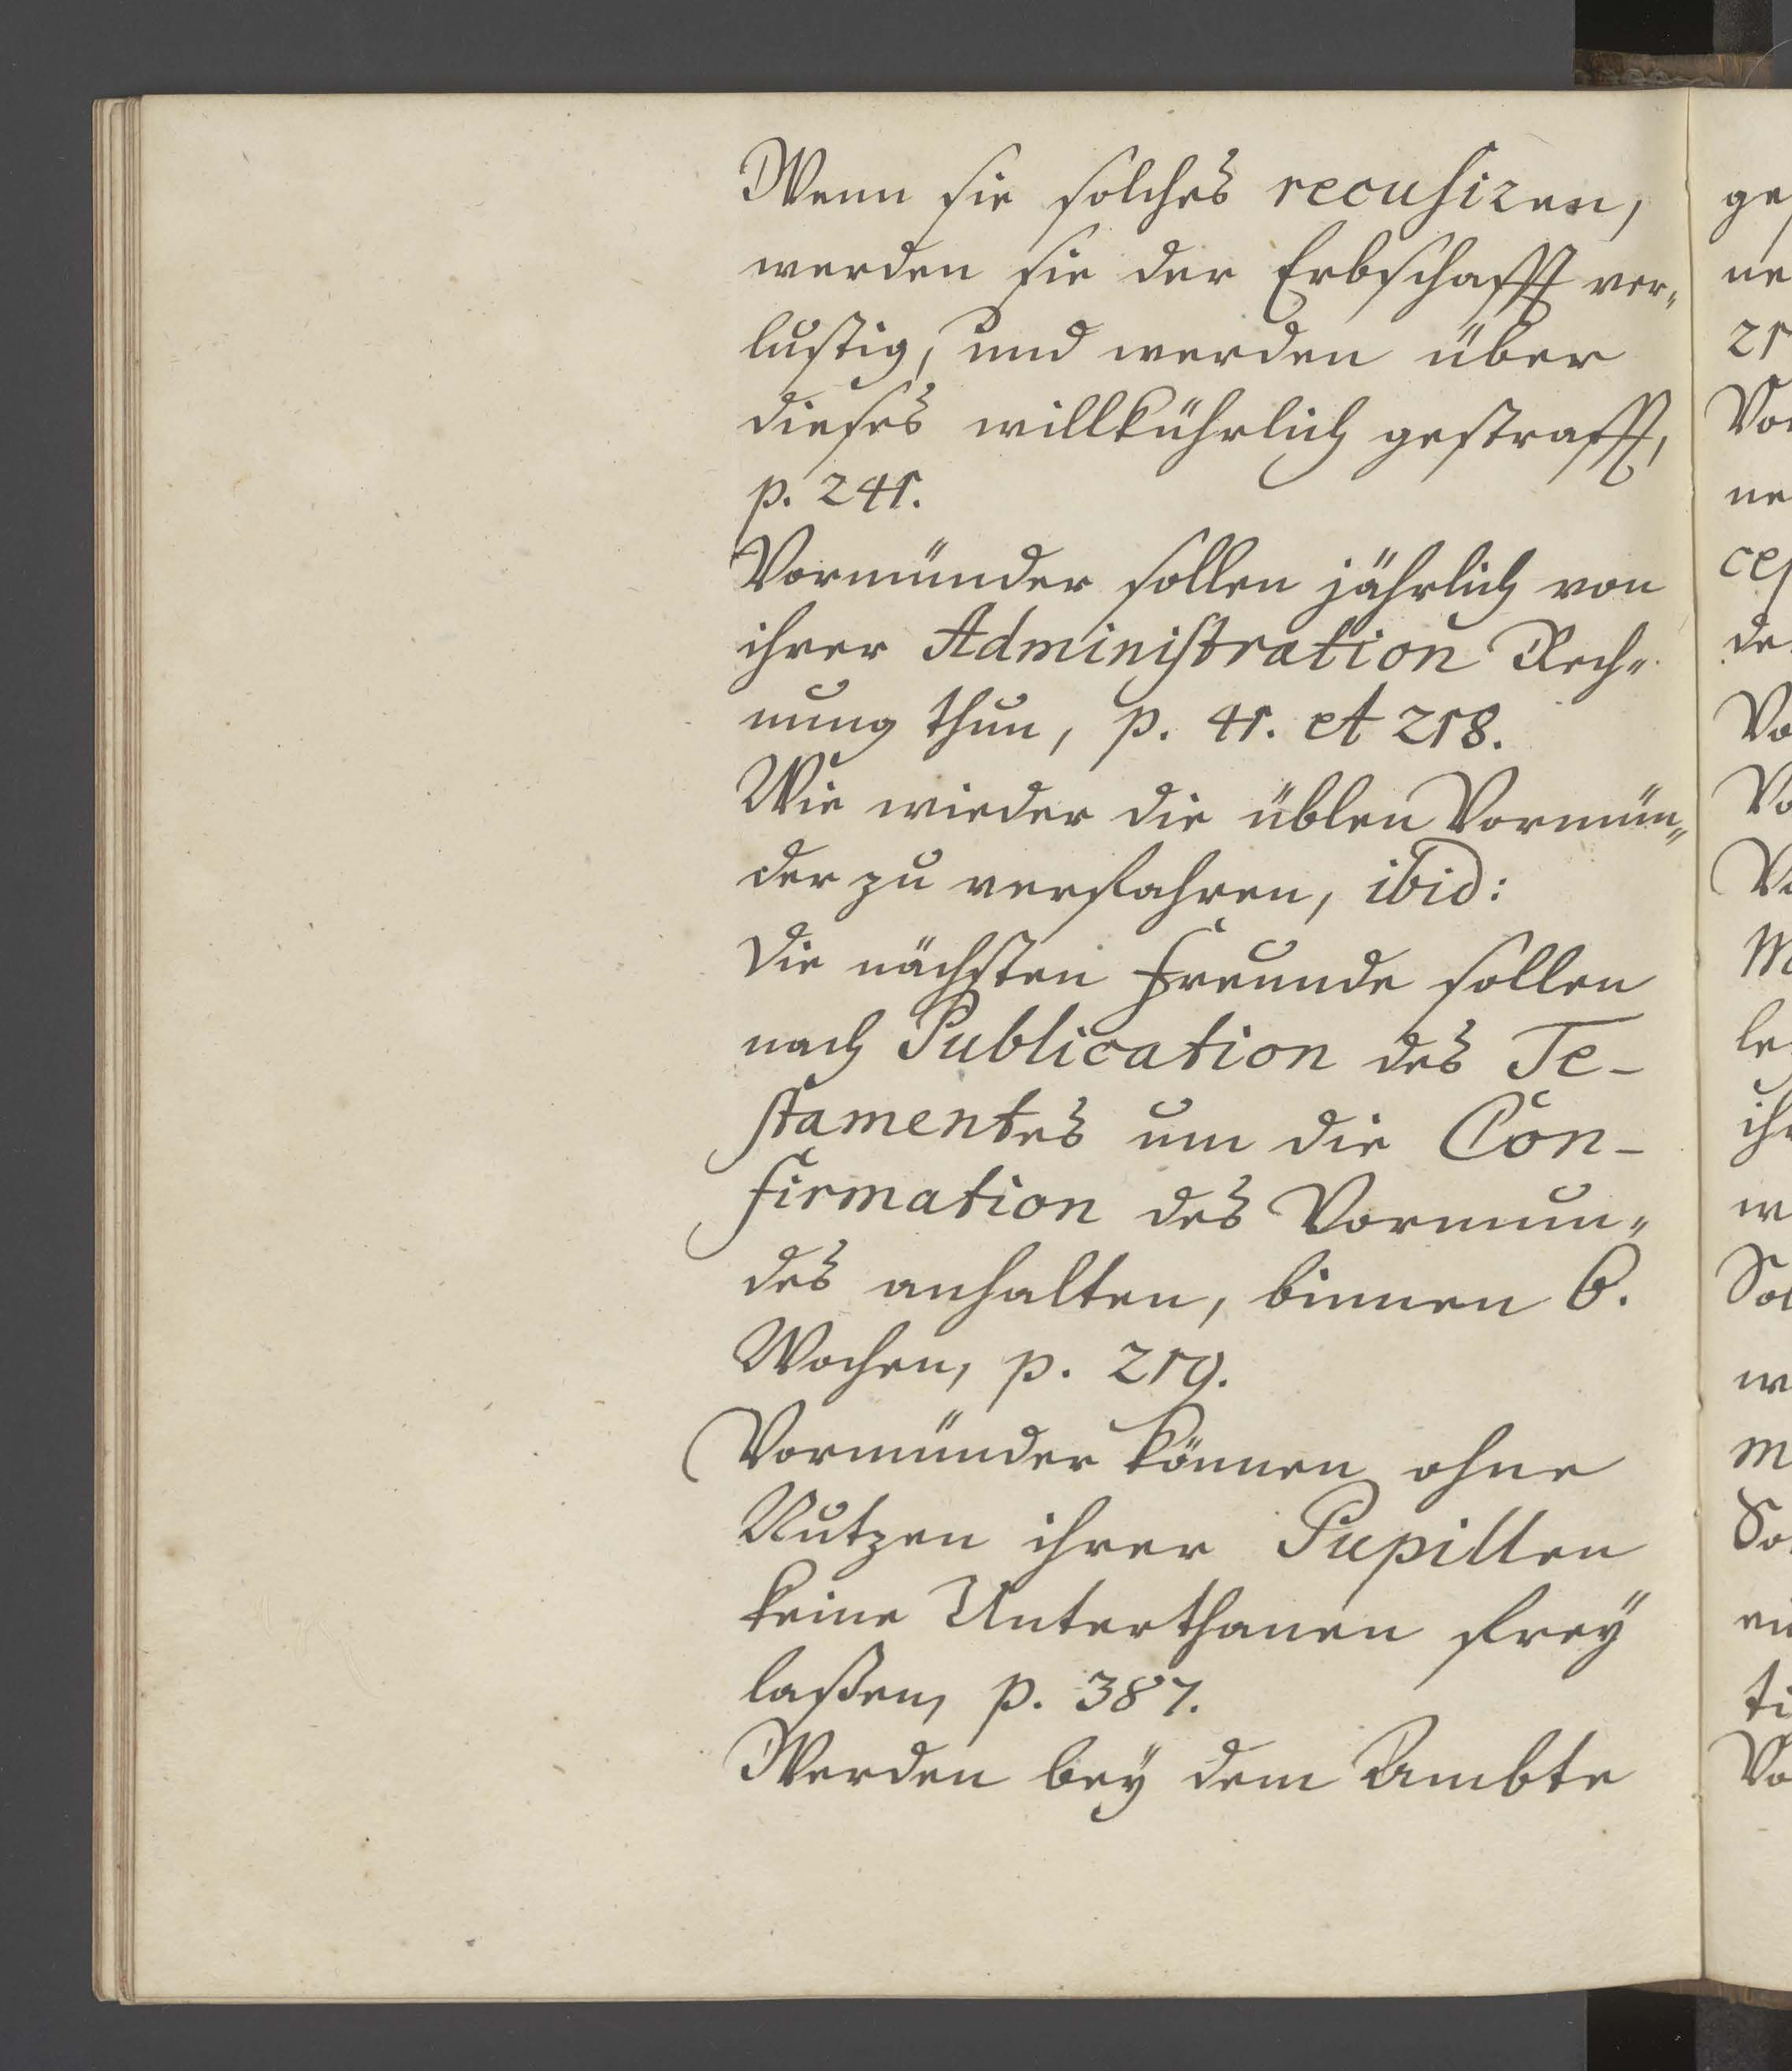 Wenn sie solches recusiren,
werden sie der Erbschafft ver-
lustig, und werden über
dieses willkührlich gestrafft,
p. 241.
Vormünder sollen jährlich von
ihrer Administration Rech-
nung thun, p. 41. et 218.
Wie wieder die üblen Vormün-
der zu verfahren, ibid:
Die nächsten Freunde sollen
nach Publication des Te-
stamentes um die Con-
firmation des Vormun-
des anhalten, binnen 6.
Wochen, p. 219.
Vormünder können ohne
Nutzen ihrer Pupillen
keine Unterthanen frey
laßen, p. 387.
Werden bey dem Ambte